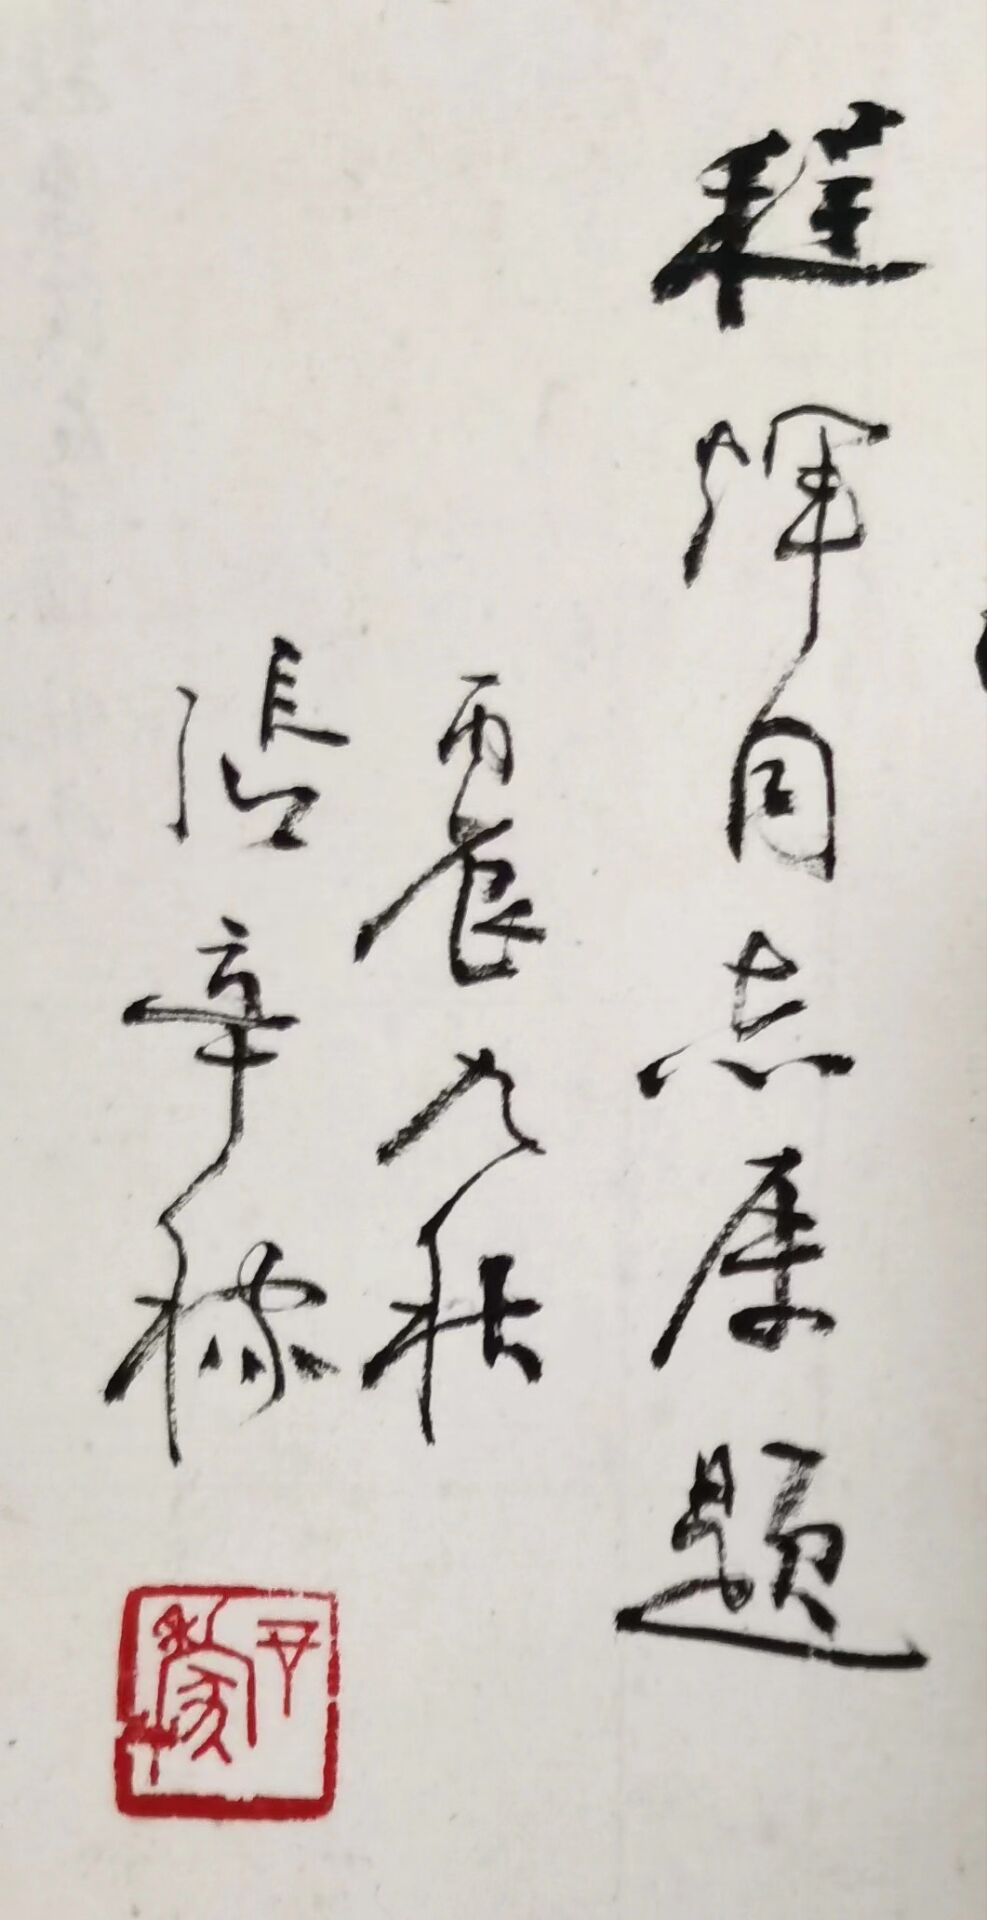 程辉同志属题
丙辰九秋
张辛稼